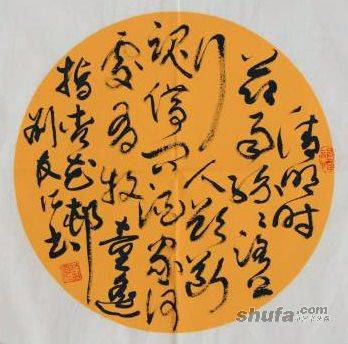 清明时
节雨纷纷路上
行人欲断
魂借问酒家何
处有牧童遥
指杏花村
书
shufa.com